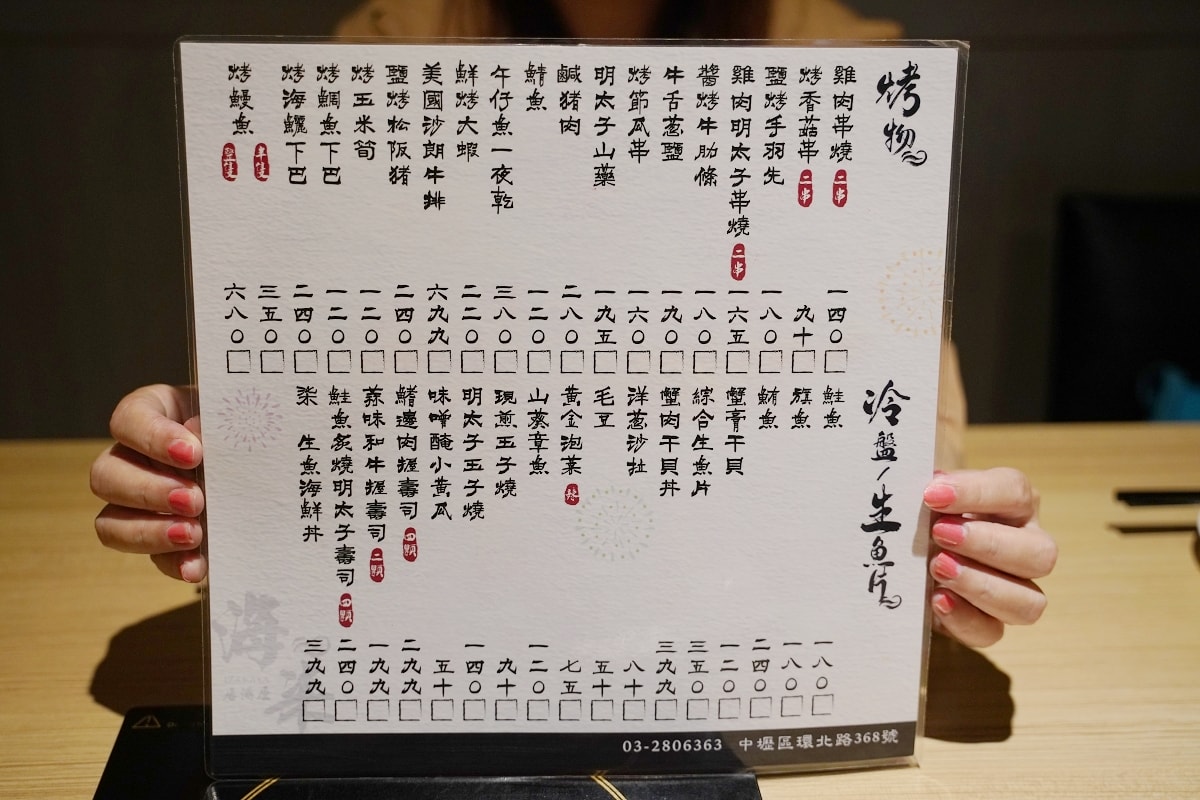 烤物
雞肉串燒 二串 一四〇
烤香菇串 二串 九十
鹽烤手羽先 一八〇
雞肉明太子串燒 二串 一六五
醬烤牛肋條 一八〇
牛舌蔥鹽 一九〇
烤節瓜串 一六〇
明太子山藥 一九五
鹹豬肉 二八〇
鯖魚 一二〇
午仔魚一夜乾 三八〇
鮮烤大蝦 二二〇
美國沙朗牛排 六九九
鹽烤松阪豬 二四〇
烤玉米筍 一二〇
烤鯛魚下巴 一二〇
烤海鱺下巴 二四〇
烤鰻魚 半隻 三五〇
整隻 六八〇
冷盤/生魚片
鮭魚 一八〇
旗魚 一八〇
鮪魚 二四〇
蟹膏干貝 一二〇
綜合生魚片 三五〇
蟹肉干貝丼 三九九
洋蔥沙拉 八十
毛豆 五十
黃金泡菜 辣 七五
山葵章魚 一二〇
現煎玉子燒 九十
明太子玉子燒 一四〇
味噌醃小黃瓜 五十
鰭邊肉握壽司 四顆 二九九
蒜味和牛握壽司 二顆 一九九
鮭魚炙燒明太子壽司 四顆 二四〇
柒 生魚海鮮丼 三九九
海柒
居酒屋
03-2806363 中壢區環北路368號